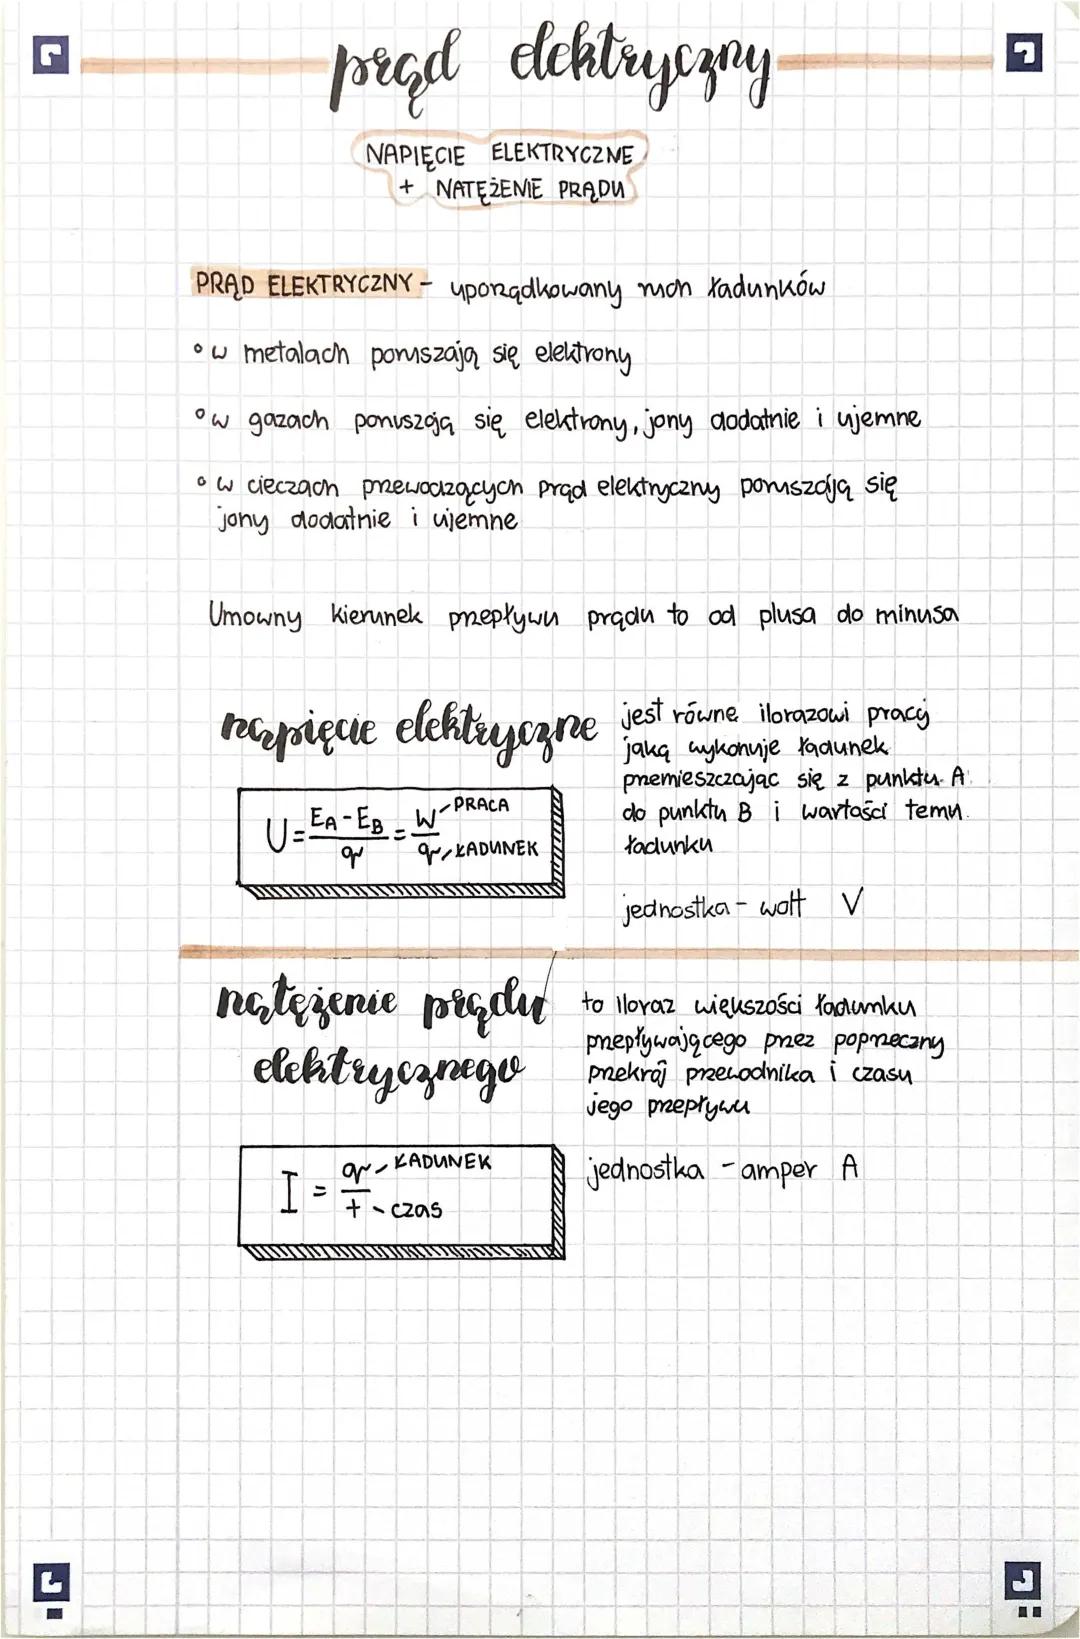 prąd elektryczny
NAPIĘCIE ELEKTRYCZNE
+ NATĘŻENIE PRĄDU
PRĄD ELEKTRYCZNY - uporządkowany ruch ładunków
° w metalach poruszają się elektrony
° w gazach poruszają się elektrony, jony dodatnie i ujemne
° w cieczach przewodzących prąd elektryczny poruszają się
jony dodatnie i ujemne
Umowny kierunek przepływu prądu to od plusa do minusa
napięcie elektryczne
jest równe ilorazowi pracy
jaką wykonuje ładunek
przemieszczając się z punktu A
do punktu B i wartości temu
ładunku
U = (EA - EB)/q = W/q
PRACA
ŁADUNEK
jednostka - wolt V
natężenie prądu
elektrycznego
to iloraz większości ładunku
przepływającego przez poprzeczny
przekrój przewodnika i czasu
jego przepływu
I = q/t
ŁADUNEK
czas
jednostka - amper A